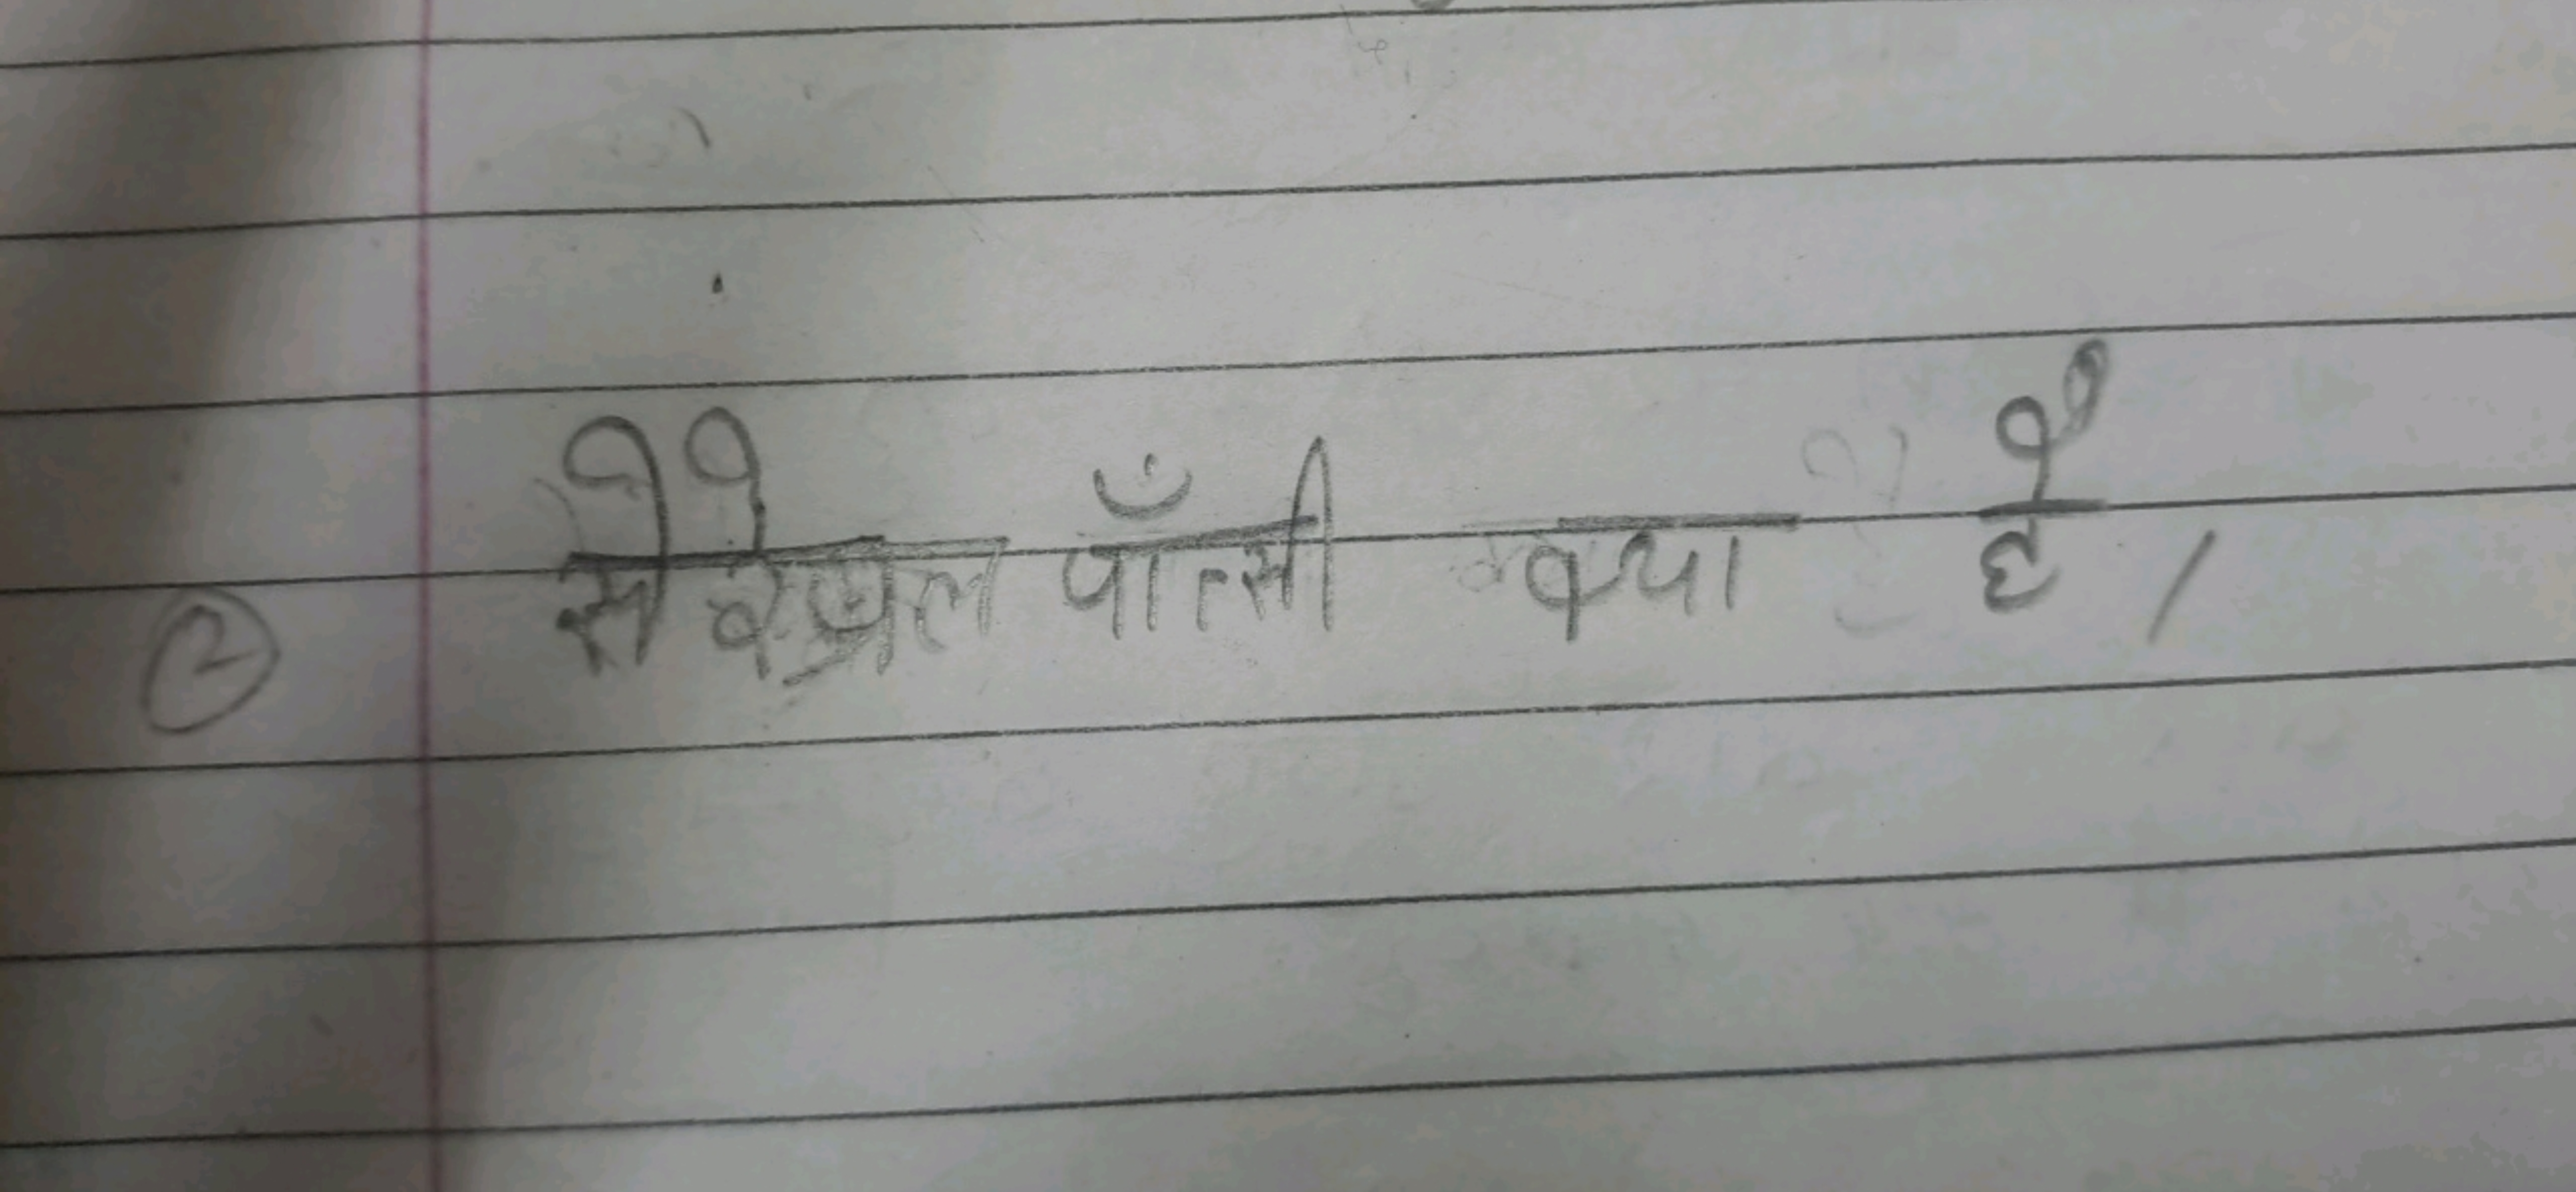 ② सेरेब्रल पॉल्सी क्या है ।